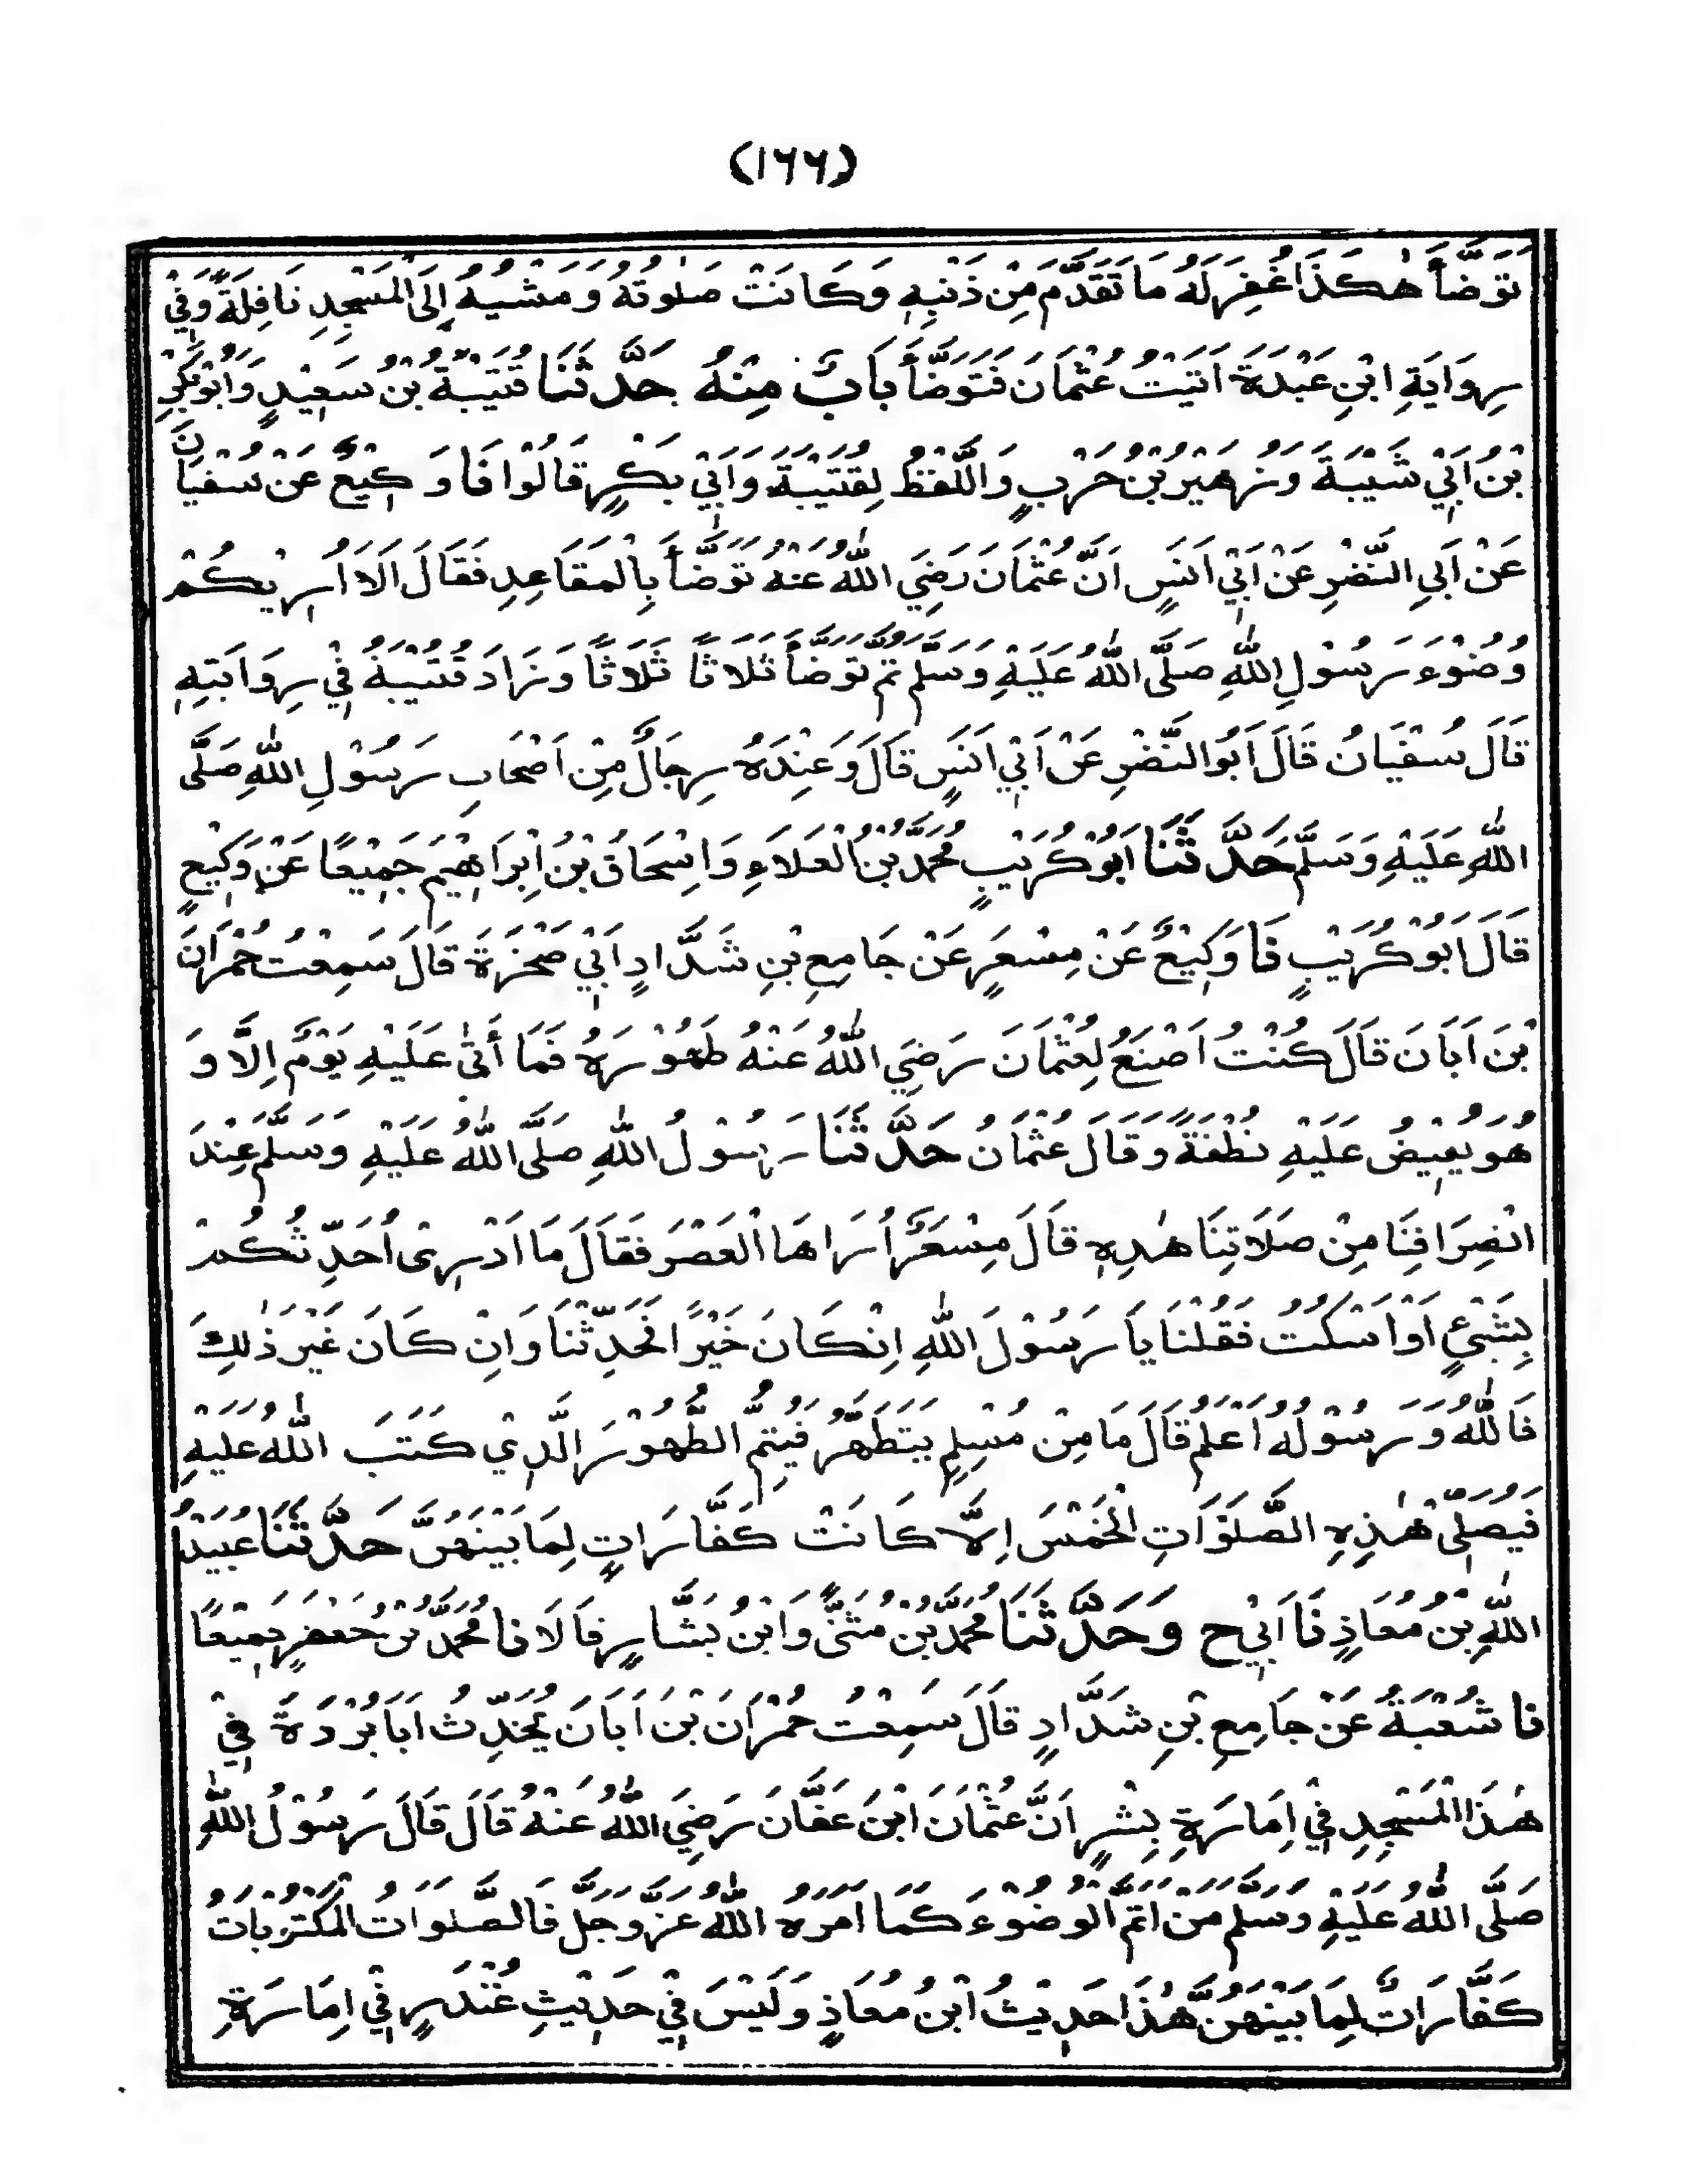 (١٦٦)
تَوَضَّأَ هٰكَذَا غُفِرَ لَهُ مَا تَقَدَّمَ مِنْ ذَنْبِهٖ وَكَانَتْ صَلٰوتُهُ وَمَشْيُهُ إِلَى الْمَسْجِدِ نَافِلَةً وَفِيْ
رِوَايَةِ ابْنِ عَبْدَةَ اَتَيْتُ عُثْمَانَ فَتَوَضَّأَ بَابٌ مِنْهُ حَدَّثَنَا قُتَيْبَةُ بْنُ سَعِيْدٍ وَاَبُوْبَكْرِ
بْنُ اَبِيْ شَيْبَةَ وَزُهَيْرُ بْنُ حَرْبٍ وَاللَّفْظُ لِقُتَيْبَةَ وَاَبِيْ بَكْرٍ قَالُوْا نَا وَكِيْعٌ عَنْ سُفْيَانَ
عَنْ اَبِي النَّضْرِ عَنْ اَبِيْ اَنَسٍ اَنَّ عُثْمَانَ رَضِيَ اللّٰهُ عَنْهُ تَوَضَّأَ بِالْمَقَاعِدِ فَقَالَ اَلَا اُرِيْكُمْ
وُضُوْءَ رَسُوْلِ اللّٰهِ صَلَّى اللّٰهُ عَلَيْهِ وَسَلَّمَ ثُمَّ تَوَضَّأَ ثَلَاثًا ثَلَاثًا وَزَادَ قُتَيْبَةُ فِيْ رِوَايَتِهٖ
قَالَ سُفْيَانُ قَالَ اَبُو النَّضْرِ عَنْ اَبِيْ اَنَسٍ قَالَ وَعِنْدَهُ رِجَالٌ مِنْ اَصْحَابِ رَسُوْلِ اللّٰهِ صَلَّى
اللّٰهِ عَلَيْهِ وَسَلَّمَ حَدَّثَنَا اَبُوْ كُرَيْبٍ مُحَمَّدُ بْنُ الْعَلَاءِ وَاِسْحَاقُ بْنُ اِبْرَاهِيْمَ جَمِيْعًا عَنْ وَكِيْعٍ
قَالَ اَبُوْ كُرَيْبٍ نَا وَكِيْعٌ عَنْ مِسْعَرٍ عَنْ جَامِعِ بْنِ شَدَّادٍ اَبِيْ صَخْرَةَ قَالَ سَمِعْتُ حُمْرَانَ
بْنَ اَبَانَ قَالَ كُنْتُ اَصْنَعُ لِعُثْمَانَ رَضِيَ اللّٰهُ عَنْهُ طَهُوْرَهُ فَمَا أَتٰى عَلَيْهِ يَوْمٌ اِلَّا وَ
هُوَ يُفِيْضُ عَلَيْهِ نُطْفَةً وَقَالَ عُثْمَانُ حَدَّثَنَا رَسُوْلُ اللّٰهِ صَلَّى اللّٰهُ عَلَيْهِ وَسَلَّمَ عِنْدَ
انْصِرَافِنَا مِنْ صَلَاتِنَا هٰذِهٖ قَالَ مِسْعَرٌ اُرَاهَا الْعَصْرَ فَقَالَ مَا اَدْرِىْ اُحَدِّثُكُمْ
بِشَيْءٍ اَوْ اَسْكُتُ فَقُلْنَا يَا رَسُوْلَ اللّٰهِ اِنْ كَانَ خَيْرًا فَحَدِّثْنَا وَاِنْ كَانَ غَيْرَ ذٰلِكَ
فَاللّٰهُ وَرَسُوْلُهُ اَعْلَمُ قَالَ مَا مِنْ مُسْلِمٍ يَتَطَهَّرُ فَيُتِمُّ الطُّهُوْرَ الَّذِيْ كَتَبَ اللّٰهُ عَلَيْهِ
فَيُصَلِّيْ هٰذِهِ الصَّلَوَاتِ الْخَمْسَ اِلَّا كَانَتْ كَفَّارَاتٍ لِمَا بَيْنَهُنَّ حَدَّثَنَا عُبَيْدُ
اللّٰهِ بْنُ مُعَاذٍ نَا اَبِيْ ح وَحَدَّثَنَا مُحَمَّدُ بْنُ مُثَنًّى وَابْنُ بَشَّارٍ قَالَا نَا مُحَمَّدُ بْنُ جَعْفَرٍ جَمِيْعًا
نا شُعْبَةُ عَنْ جَامِعِ بْنِ شَدَّادٍ قَالَ سَمِعْتُ حُمْرَانَ بْنَ اَبَانَ يُحَدِّثُ اَبَا بُرْدَةَ فِيْ
هٰذَا الْمَسْجِدِ فِيْ اِمَارَةِ بِشْرٍ اَنَّ عُثْمَانَ ابْنَ عَفَّانَ رَضِيَ اللّٰهُ عَنْهُ قَالَ قَالَ رَسُوْلُ اللّٰهِ
صَلَّى اللّٰهُ عَلَيْهِ وَسَلَّمَ مَنْ اَتَمَّ الْوُضُوْءَ كَمَا اَمَرَهُ اللّٰهُ عَزَّ وَجَلَّ فَالصَّلَوَاتُ الْمَكْتُوْبَاتُ
كَفَّارَاتٌ لِمَا بَيْنَهُنَّ هٰذَا حَدِيْثُ ابْنُ مُعَاذٍ وَلَيْسَ فِيْ حَدِيْثِ غُنْدَرٍ فِيْ اِمَارَةِ